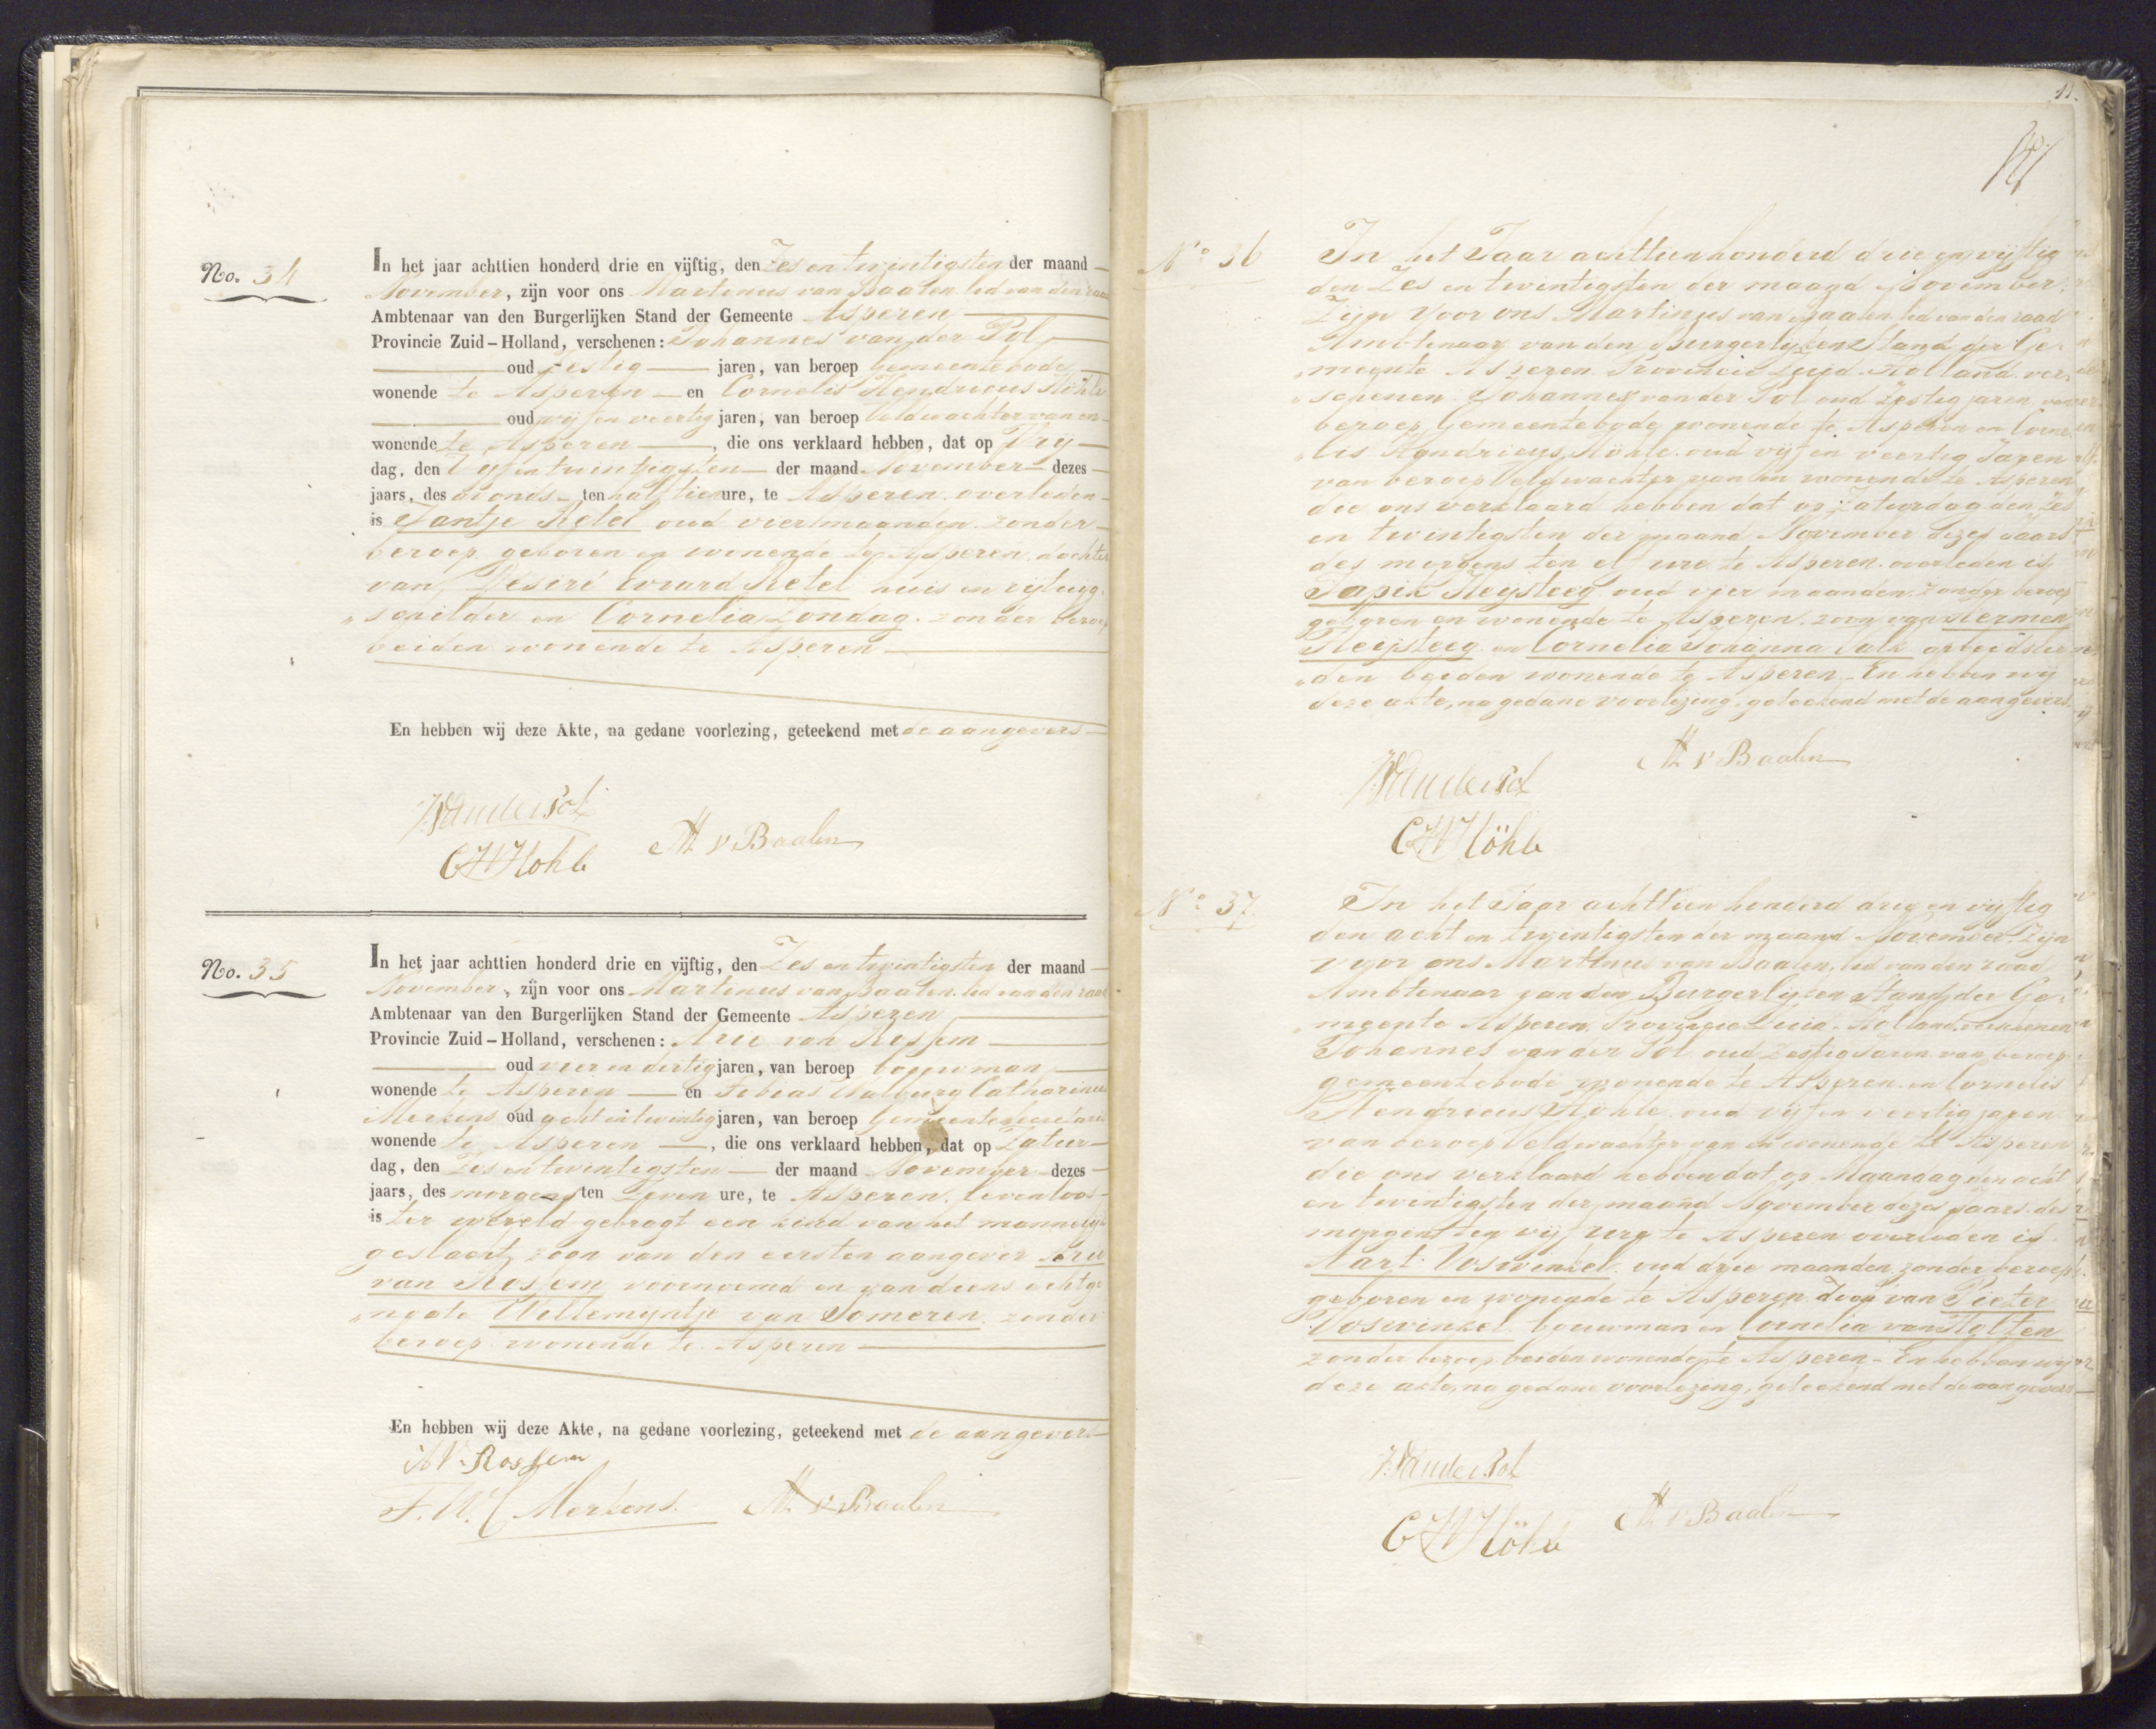 No. 34
In het jaar achttien honderd drie en vijftig, den Zes en twintigsten der maand
November, zijn voor ons Martinus van Baalen. lid van den raad
Ambtenaar van den Burgerlijken Stand der Gemeente Asperen
Provincie Zuid-Holland, verschenen: Johannes van der Pol
oud zestig jaren, van beroep Gemeentebode
wonende te Asperen en Cornelis Hendricus Höhle
oud vijf en veertig jaren, van beroep Veldwachter van en
wonende te Asperen, die ons verklaard hebben, dat op Vrij-
dag, den Vyf en twintigsten der maand November dezes
jaars, des avonds ten half tien ure, te Asperen. overleden
is Jantje Ketel oud vier maanden. zonder
beroep. geboren en wonende te Asperen. dochter
van Désiré Evrard Ketel huis en rijtuig-
" schilder en Cornelia Zondag. zonder beroep
beiden wonende te Asperen
En hebben wij deze Akte, na gedane voorlezing, geteekend met de aangevers
JVanderPol
CHHöhle M v Baalen
No. 35
In het jaar achttien honderd drie en vijftig, den Zes en twintigsten der maand
November, zijn voor ons Martinus van Baalen. lid van den raad
Ambtenaar van den Burgerlijken Stand der Gemeente Asperen
Provincie Zuid-Holland, verschenen: Arie van Rossem
oud vier en dertig jaren, van beroep bouwman
wonende te Asperen en Tobias Walburg Catharinus
Merkens oud acht en twintig jaren, van beroep Gemeentesecretaris
wonende te Asperen, die ons verklaard hebben, dat op Zatur-
dag, den Zes en twintigsten der maand November dezes
jaars, des morgens ten zeven ure, te Asperen, levenloos
is ter wereld gebragt een kind van het mannelijk
geslacht, zoon van den eersten aangever Arie
van Rossem voornoemd en van diens echtge-
" noote Willemyntje van Someren. zonder
beroep. wonende te Asperen
En hebben wij deze Akte, na gedane voorlezing, geteekend met de aangevers
AV. Rossem
T. W. C Merkens. M v Baalen
11.
No 36
In het Jaar achttienhonderd drie en vijftig
den Zes en twintigsten der maand November,
Zijn voor ons Martinus van Baalen. lid van den raad
Ambtenaar van den Burgerlijken Stand der Ge-
" meente Asperen. Provincie Zuid-Holland. ver-
" schenen Johannes van der Pol oud Zestig jaren, van
beroep Gemeentebode wonende te Asperen en Corne-
" lis Hendricus Höhle. oud vijf en veertig Jaren
van beroep Veldwachter van en wonende te Asperen
die ons verklaard hebben dat op Zaturdag den Zes
en twintigsten der maand November dezes Jaars
des morgens ten elf ure te Asperen. overleden is
Japik Heijsteeg oud vier maanden. zonder beroep
geboren en wonende te Asperen. zoon van Hermen
Heijsteeg en Cornelia Johanna Valk arbeidslie-
" den beiden wonende te Asperen. En hebben wij
deze akte, na gedane voorlezing, geteekend met de aangevers
JVanderPol M v Baalen
CHHöhle
No 37.
In het Jaar achttien honderd drie en vijftig
den acht en twintigsten der maand November. Zijn
voor ons Martinus van Baalen, lid van den raad
Ambtenaar van den Burgerlijken Stand der Ge-
" meente Asperen. Provincie Zuid-Holland. verschenen
Johannes van der Pol oud Zestig Jaren van beroep
gemeentebode wonende te Asperen en Cornelis
Hendricus Höhle oud vijf en veertig jaren
van beroep Veldwachter van en wonende te Asperen
die ons verklaard hebben dat op Maandag den acht
en twintigsten der maand November dezes jaars. des
morgens ten vijf ure te Asperen overleden is
Aart Voswinkel oud drie maanden. zonder beroep
geboren en wonende te Asperen Zoon van Pieter
Voswinkel. bouwman en Cornelia van Holten
zonder beroep. beiden wonende te Asperen. En hebben wij
deze akte, na gedane voorlezing, geteekend met de aangevers
JVanderPol
CHHöhle M v Baalen